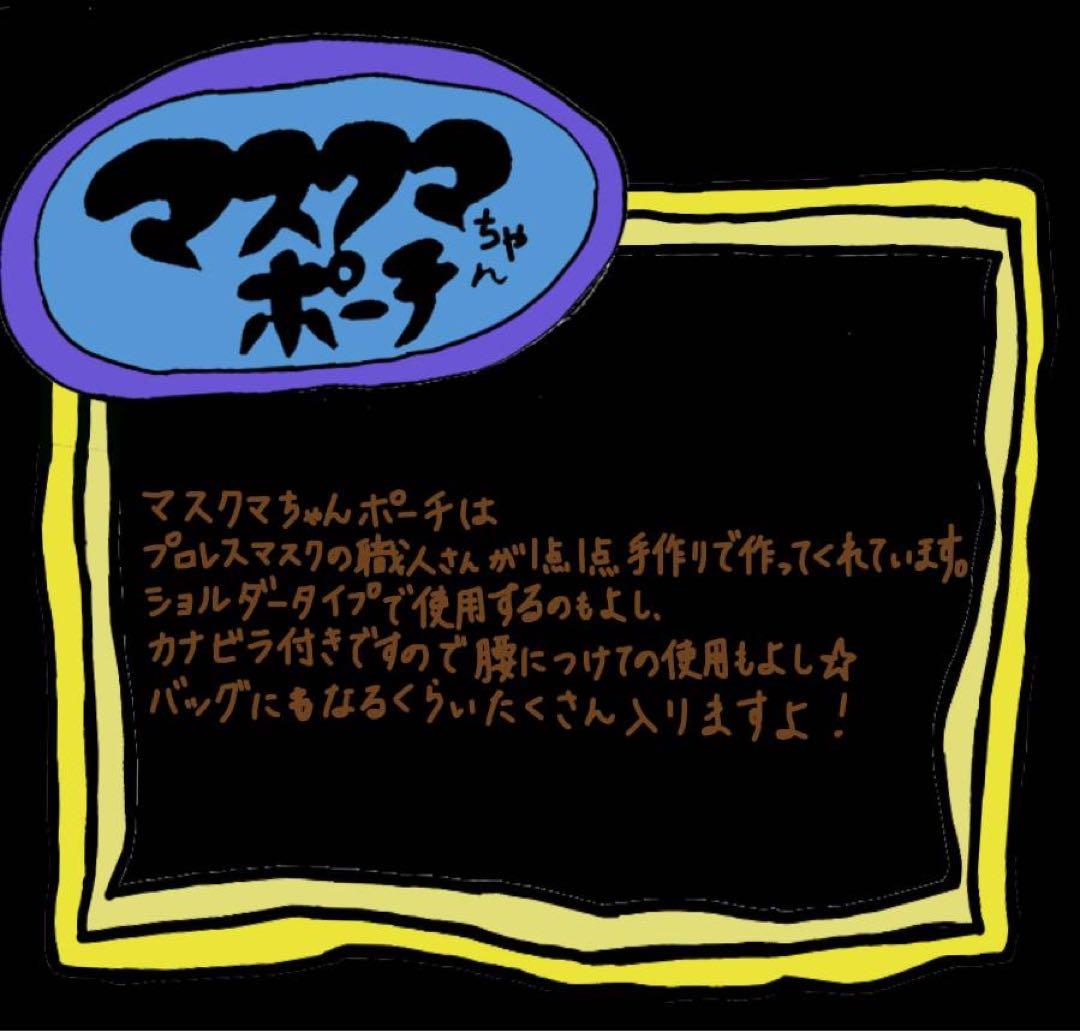 マスクマちゃん
ポーチ
マスクマちゃんポーチは
プロレスマスクの職人さんが1点1点手作りで作ってくれています。
ショルダータイプで使用するのもよし、
カナビラ付きですので腰につけての使用もよし☆
バッグにもなるくらいたくさん入りますよ！